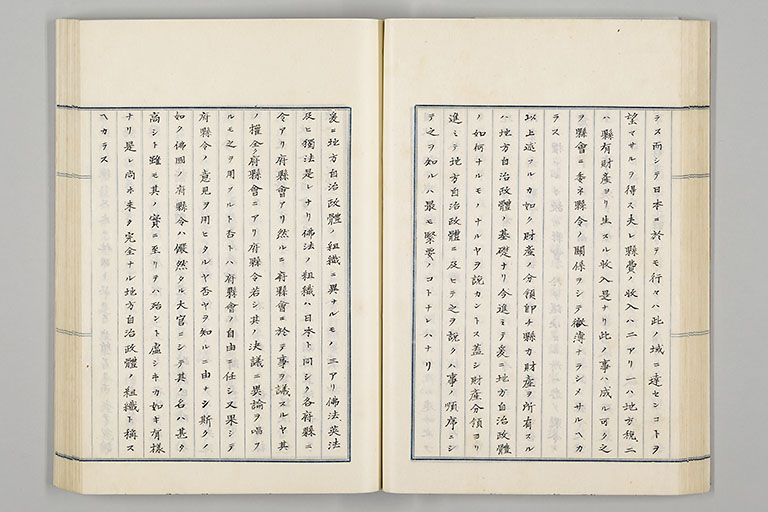 ラス而シテ日本ニ於テモ行々ハ此ノ域ニ達センコトヲ
望マサルヲ得ス夫レ縣費ノ收入ハ二アリ一ハ地方税二
ハ縣有財産ヨリ生スル收入是ナリ此ノ事ハ成ル可ク之
ヲ縣會ニ委ネ縣令ノ關係ヲシテ微薄ナラシメサルヘカ
ラス
以上述フルカ如ク財産ノ分領即チ縣カ財産ヲ所有スル
ハ地方自治政體ノ基礎ナリ今進ミテ爰ニ地方自治政體
ノ如何ナルモノナルヤヲ説カントス蓋シ財産分領ヨリ
進ミテ地方自治政體ニ及ヒテ之ヲ説クハ事ノ順序ニシ
テ之ヲ知ルハ最モ緊要ノコトナレハナリ
爰ニ地方自治政體ノ組織ニ異ナルモノ三アリ佛法英法
及ヒ獨法是レナリ佛法ノ組織ハ日本ト同シク各府縣ニ
令アリ府縣會アリ然ルニ府縣會ニ於テ事ヲ議スルヤ其
ノ權全ク府縣會ニアリ府縣令若シ其ノ決議ニ異論ヲ唱フ
ルモ之ヲ用フルト否トハ府縣會ノ自由ニ任シ又果シテ
府縣令ノ意見ヲ用ヒタルヤ否ヤヲ知ルニ由ナシ斯クノ
如ク佛國ノ府縣令ハ儼然タル大官ニシテ其ノ名ハ甚タ
高シト雖モ其ノ實ニ至リテハ殆ント虚シキカ如キ有樣
ナリ是レ尚ホ未タ完全ナル地方自治政體ノ組織ト稱ス
ヘカラス